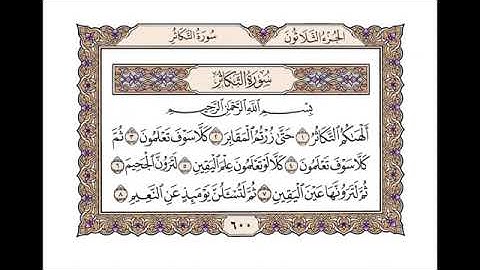 الجزء الثلاثون
سورة التكاثر
سُورَةُ التَّكَاثُرِ
بِسْمِ اللَّهِ الرَّحْمَٰنِ الرَّحِيمِ
أَلْهَىٰكُمُ التَّكَاثُرُ ١ حَتَّىٰ زُرْتُمُ الْمَقَابِرَ ٢ كَلَّا سَوْفَ تَعْلَمُونَ ٣ ثُمَّ
كَلَّا سَوْفَ تَعْلَمُونَ ٤ كَلَّا لَوْ تَعْلَمُونَ عِلْمَ الْيَقِينِ ٥ لَتَرَوُنَّ الْجَحِيمَ ٦
ثُمَّ لَتَرَوُنَّهَا عَيْنَ الْيَقِينِ ٧ ثُمَّ لَتُسْأَلُنَّ يَوْمَئِذٍ عَنِ النَّعِيمِ ٨
٦٠٠